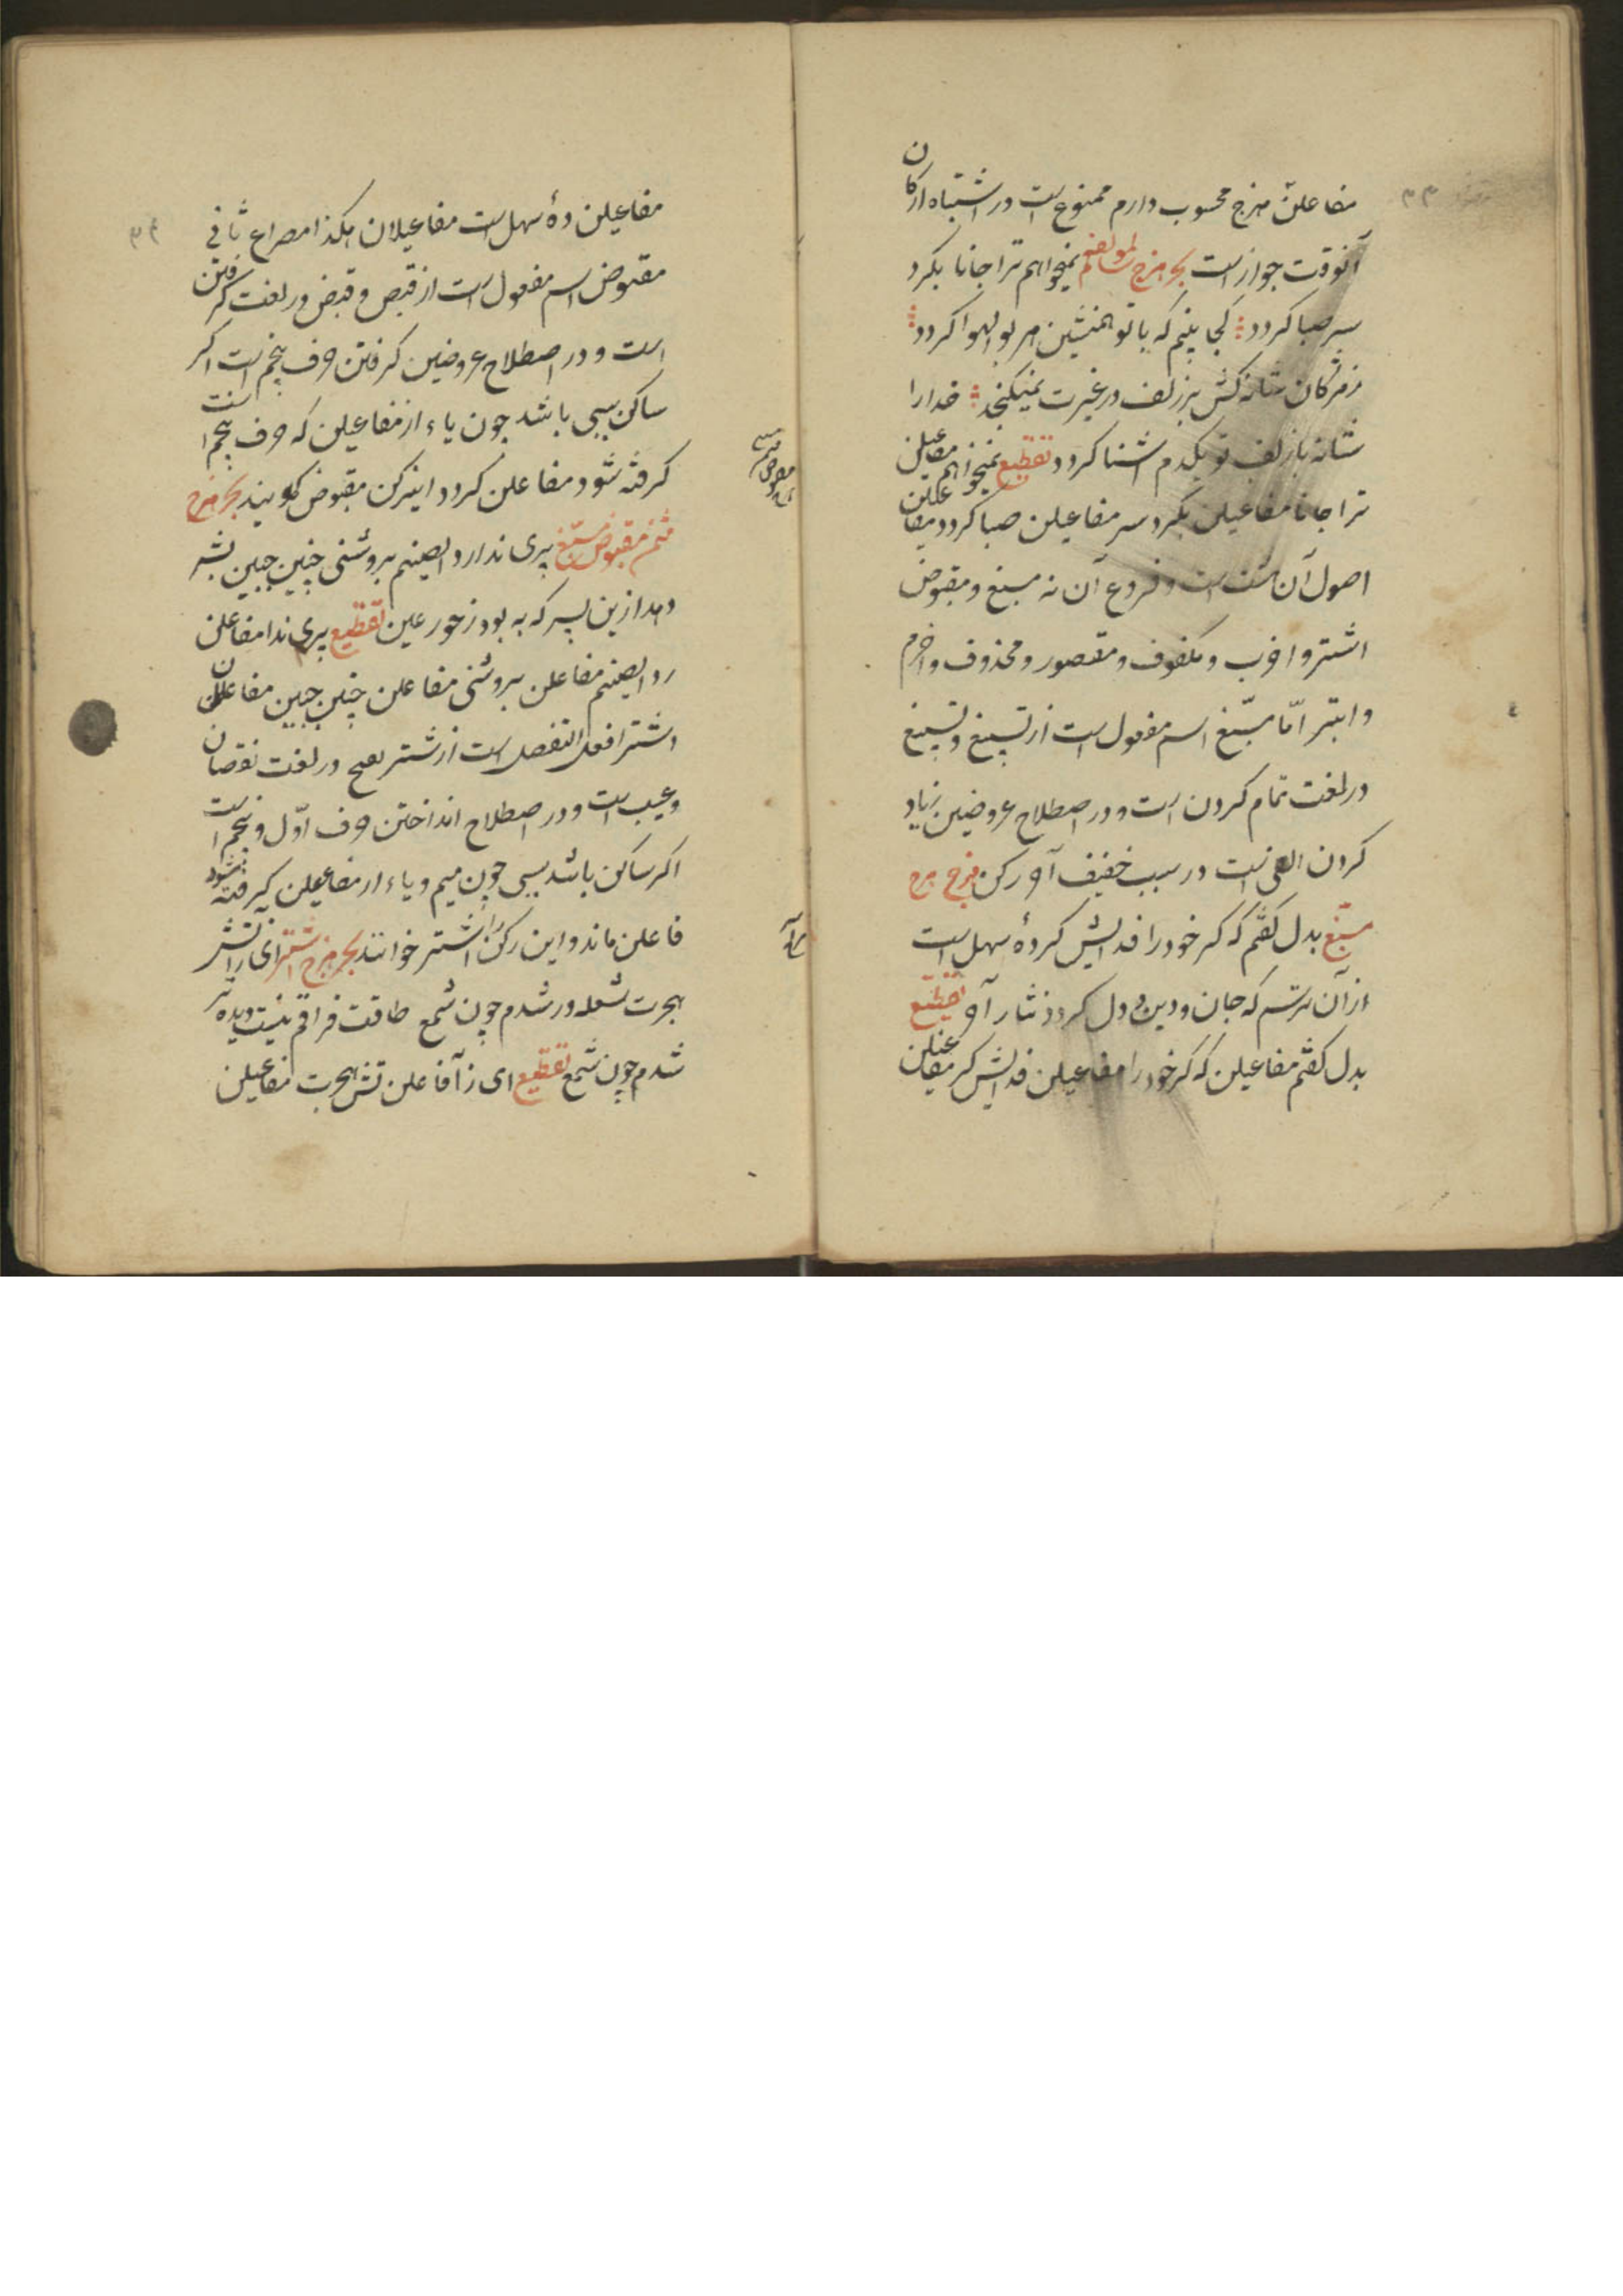 مفاعلن هزج محسوب دارم ممنوع است در اشتباه ارکان
آنوقت جواز است بحر هزج سالم لمولفه نمیخواهم ترا جانا بکرد
سر صبا کردد کجا بینم که با تو همنشین هر بوالهوا کردد
زمژکان شانه کش بر زلف در غیرت نمیکنجد خدارا
شانه با زلف تو یکدم اشنا کردد تقطیع نمیخواهم مفاعیلن
ترا جانا مفاعیلن بکرد سر مفاعیلن صبا کردد مفاعیلن
اصول آن است و فروع آن نه مسبغ و مقبوض
اشتر و اخرب و مکفوف و مقصور و محذوف و اخرم
و ابتر امّا مسبّغ اسم مفعول است از تسبیغ و تسبیغ
در لغت تمام کردن است و در اصطلاح عروضین زیاد
کردن الفی است در سبب خفیف آخر رکن هزج
مسبّغ بدل کفتم که کر خود را فدایش کردهٔ سهل است
از آن ترسم که جان و دین و دل کردد نثار آخر تقطیع
بدل کفتم مفاعیلن که کر خود را مفاعیلن فدایش کر مفاعیلن
مفاعیلن دهٔ سهل است مفاعیلان هکذا مصراع ثانی
مقبوض اسم مفعول است از قبض و قبض در لغت کرفتن
است و در اصطلاح عروضین کرفتن حرف پنجم است اکر
ساکن سببی باشد چون یاء از مفاعیلن که حرف پنجم است
کرفته شود مفاعلن کردد اینرکن مقبوض کویند بحر هزج
مثمن مقبوض مسبّغ پری ندارد ایصنم بروشنی چنین جبین بشر
دهد ازین پسر که به بود ز حور عین تقطیع پری ندا مفاعلن
رد ایصنم مفاعلن بروشنی مفاعلن چنین جبین مفاعلان
اشتر افعل التفضیل است از شتر در لغت نقصان
و عیب است و در اصطلاح انداختن حرف اوّل و پنجم است
اکر ساکن باشد سببی چون میم و یاء از مفاعیلن کیرفته شود
فاعلن ماند و این رکن را اشتر خوانند بحر هزج اشتر ای ز آتش
هجرت شعله ور شدم چون شمع طاقت فراقم نیست دیده تر
شدم چون شمع تقطیع ای ز آ فاعلن تش هجرت مفاعیلن